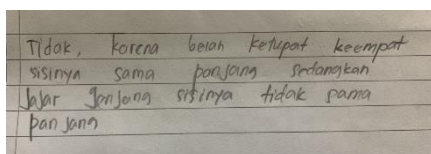 Tidak, karena belah ketupat keempat
sisinya sama panjang sedangkan
Jajar Janjang sisinya tidak sama
panjang